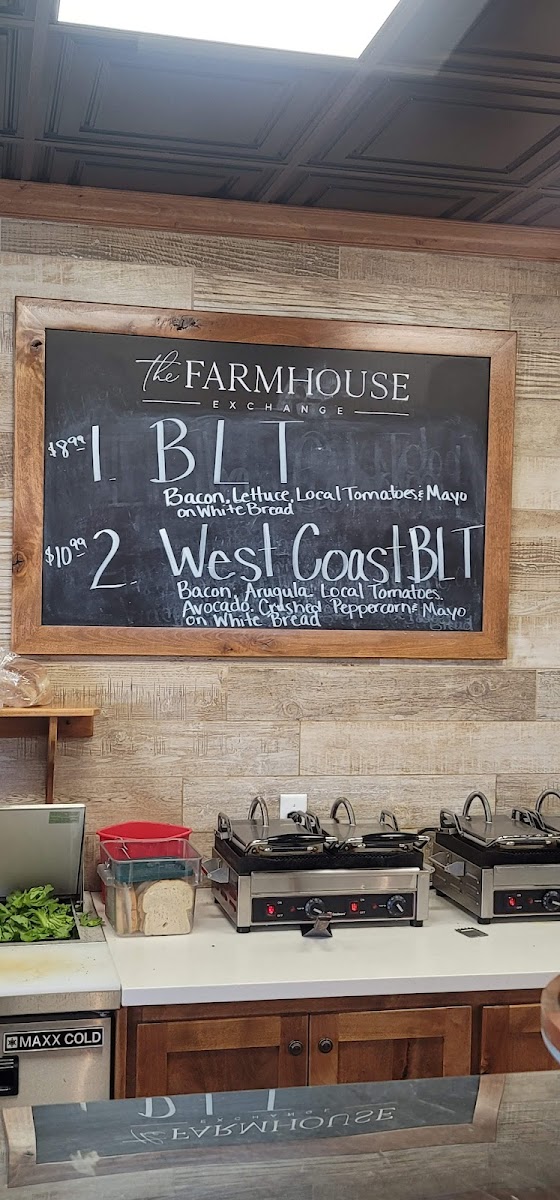 the FARMHOUSE
EXCHANGE
$8.99 1. BLT
Bacon, Lettuce, Local Tomatoes & Mayo
on White Bread
$10.99 2. West Coast BLT
Bacon, Arugula, Local Tomatoes,
Avocado, Crushed Peppercorn & Mayo
on White Bread
MAXX COLD
BLT
EXCHANGE
the FARMHOUSE